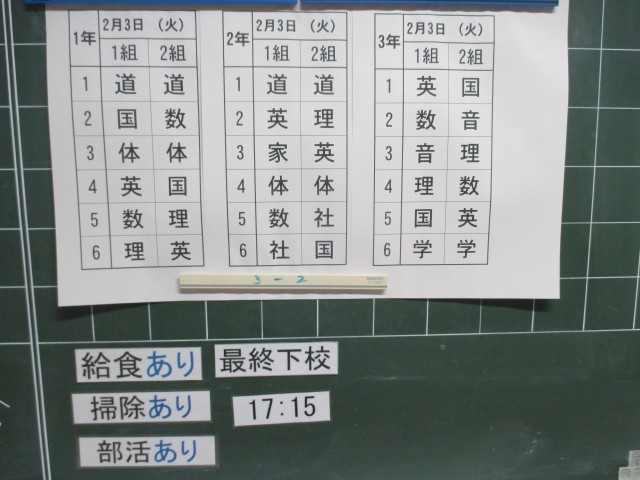 1年 2月3日 （火）
1組 2組
1 道 道
2 国 数
3 体 体
4 英 国
5 数 理
6 理 英
2年 2月3日 （火）
1組 2組
1 道 道
2 英 理
3 家 英
4 体 体
5 数 社
6 社 国
3年 2月3日 （火）
1組 2組
1 英 国
2 数 音
3 音 理
4 理 数
5 国 英
6 学 学
3-2
給食あり
掃除あり
部活あり
最終下校
17:15